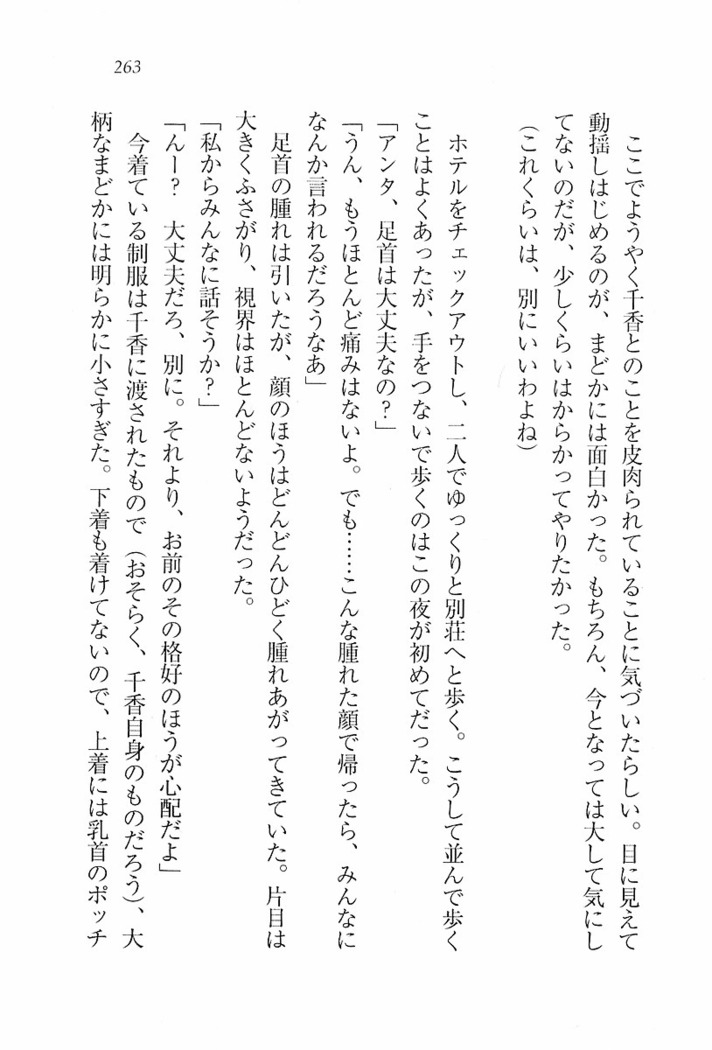 263
ここでようやく千香とのことを皮肉られていることに気づいたらしい。目に見えて
動揺しはじめるのが、まどかには面白かった。もちろん、今となっては大して気にし
てないのだが、少しくらいはからかってやりたかった。
（これくらいは、別にいいわよね）
ホテルをチェックアウトし、二人でゆっくりと別荘へと歩く。こうして並んで歩く
ことはよくあったが、手をつないで歩くのはこの夜が初めてだった。
「アンタ、足首は大丈夫なの？」
「うん、もうほとんど痛みはないよ。でも……こんな腫れた顔で帰ったら、みんなに
なんか言われるだろうなあ」
足首の腫れは引いたが、顔のほうはどんどんひどく腫れあがってきていた。片目は
大きくふさがり、視界はほとんどないようだった。
「私からみんなに話そうか？」
「んー？　大丈夫だろ、別に。それより、お前のその格好のほうが心配だよ」
今着ている制服は千香に渡されたもので（おそらく、千香自身のものだろう）、大
柄なまどかには明らかに小さすぎた。下着も着けてないので、上着には乳首のポッチ